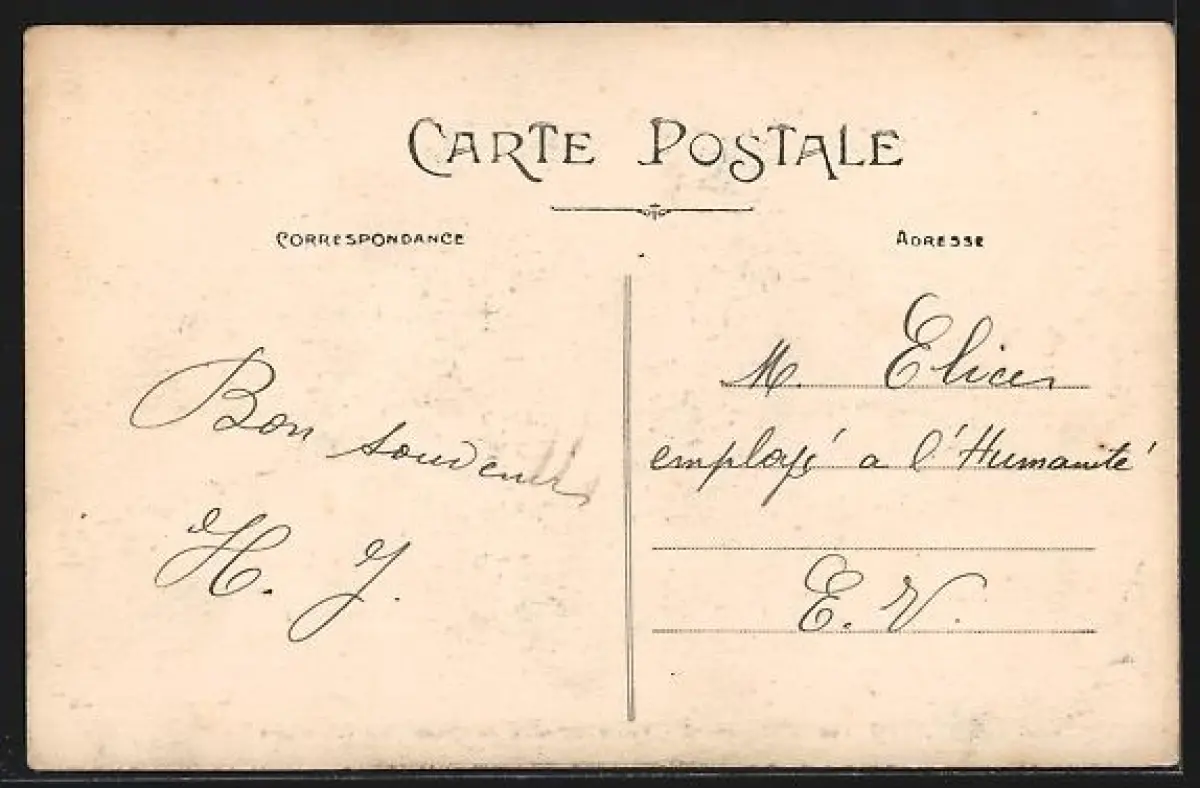 CARTE POSTALE
CORRESPONDANCE
ADRESSE
Bon souvenir
H. J.
M.
employé a l'Humanité
E. V.